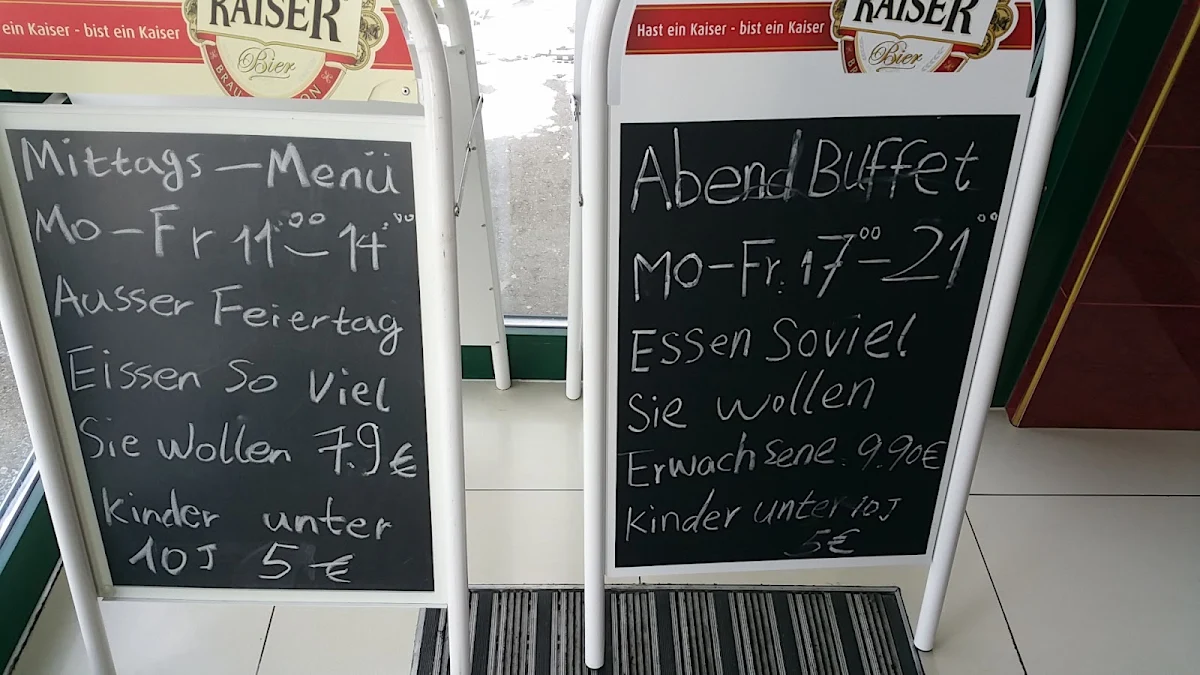 KAISER
ein Kaiser - bist ein Kaiser
Bier
Mittags – Menü
Mo – Fr 11:00 – 14:00
Ausser Feiertag
Eissen So Viel
Sie Wollen 7.9 €
Kinder unter
10J 5 €
KAISER
Hast ein Kaiser - bist ein Kaiser
Bier
Abend Buffet
MO – Fr. 17:00 – 21:00
Essen Soviel
Sie wollen
Erwachsene. 9.90€
Kinder unter 10J
5€